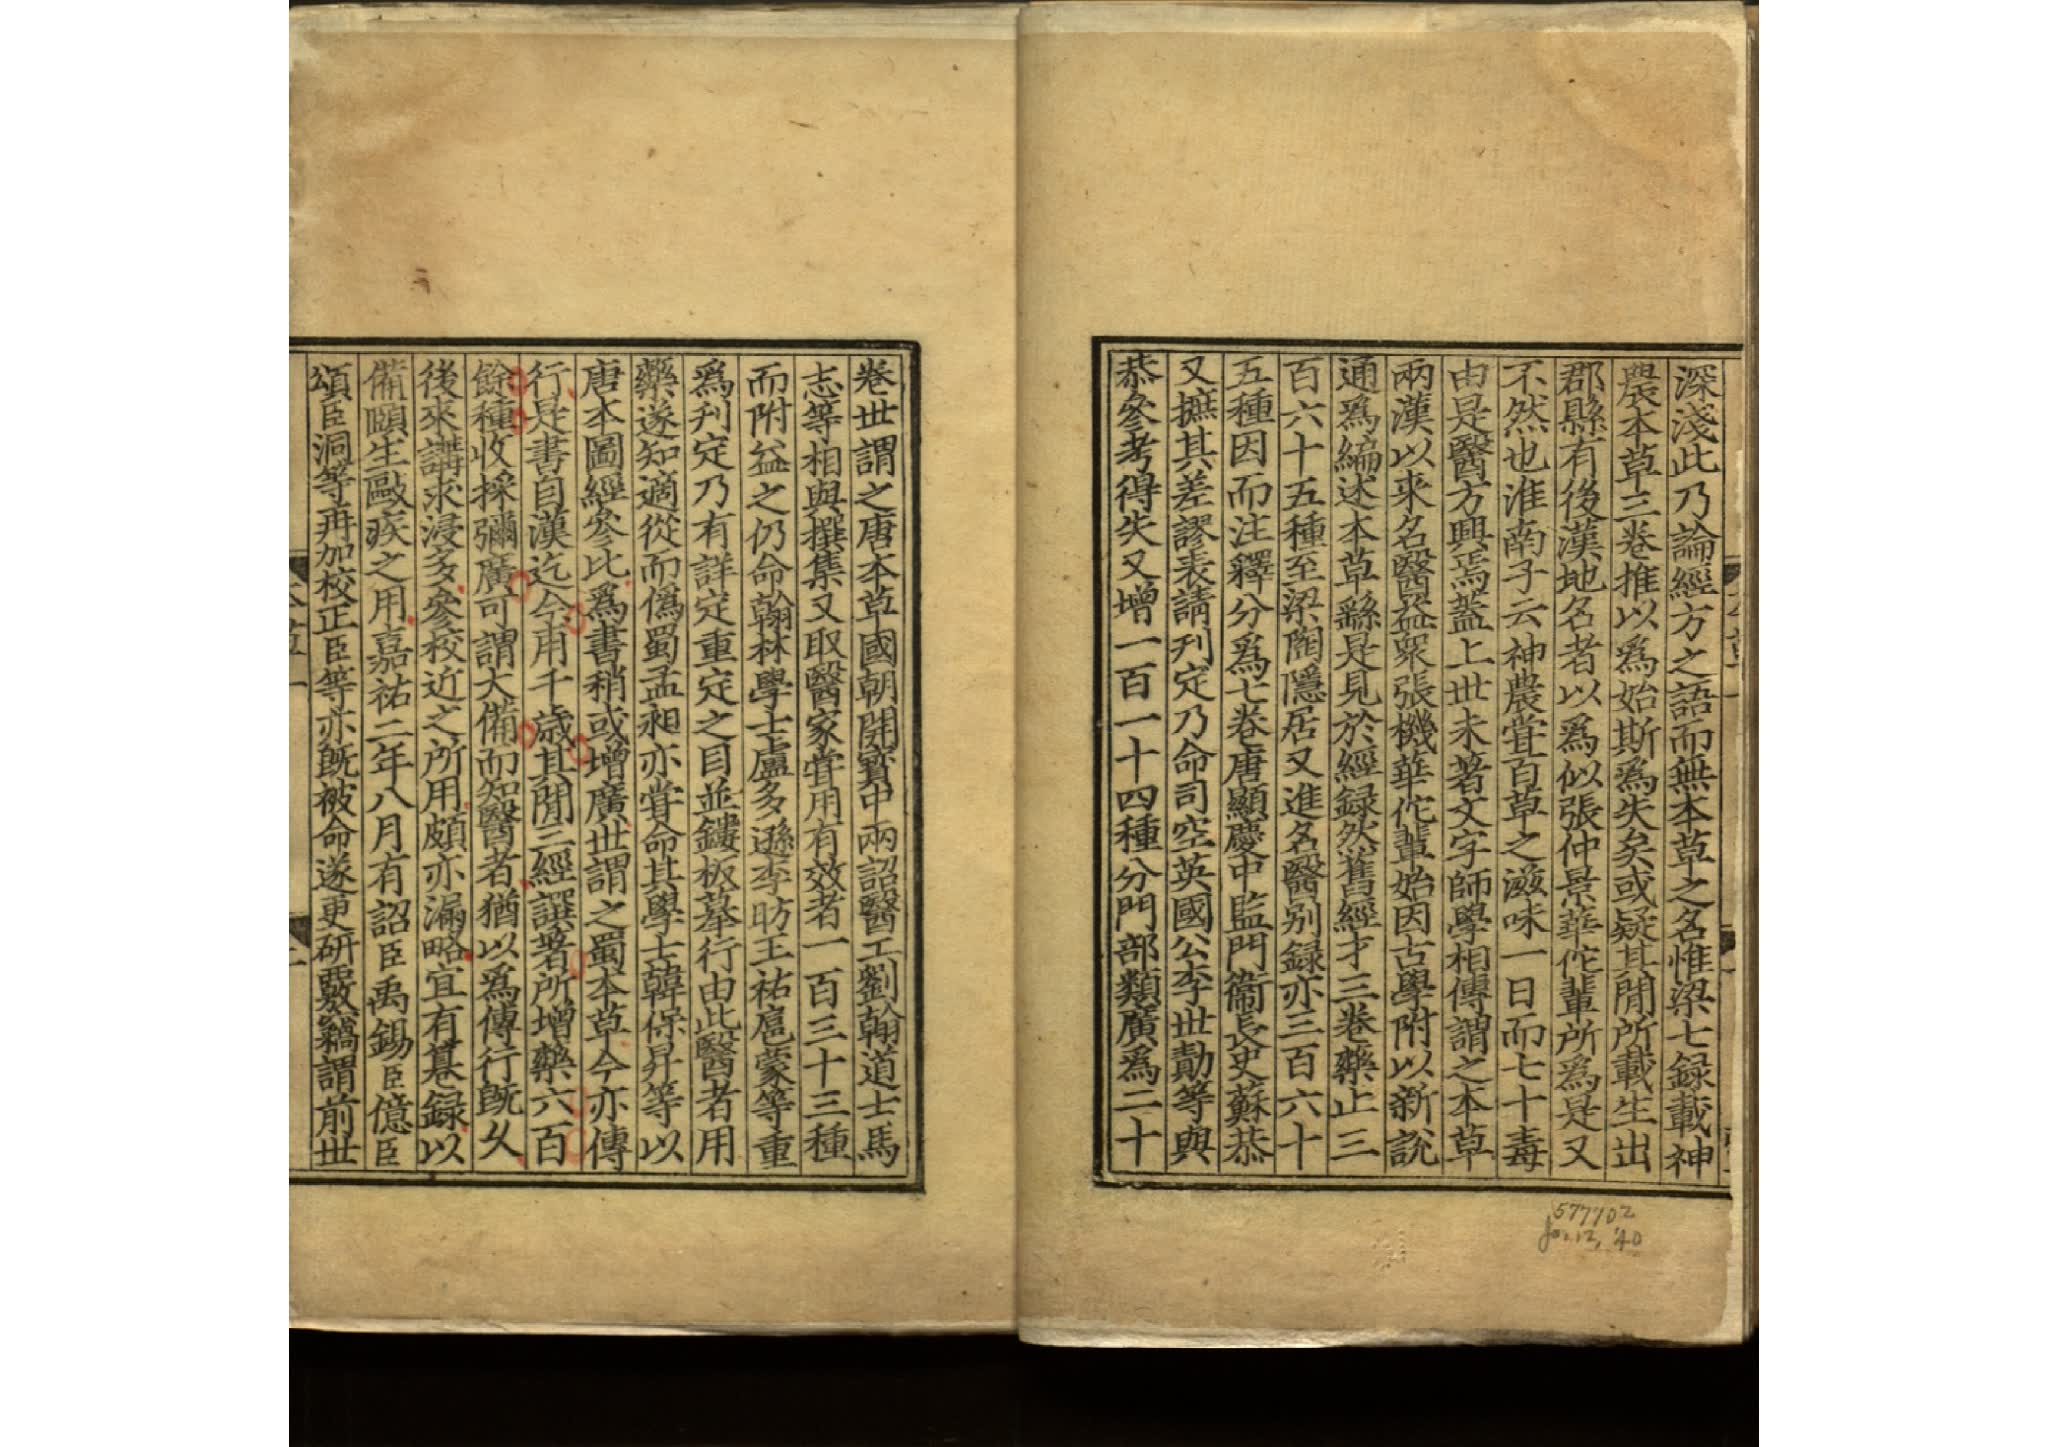 深淺此乃論經方之語而無本草之名惟梁七録載神
農本草三卷推以爲始斯爲失矣或疑其閒所載生出
郡縣有後漢地名者以爲似張仲景華佗輩所爲是又
不然也淮南子云神農甞百草之滋味一日而七十毒
由是醫方興焉蓋上世未著文字師學相傳謂之本草
兩漢以來名醫益衆張機華佗輩始因古學附以新說
通爲編述本草繇是見於經録然舊經才三卷藥止三
百六十五種至梁陶隱居又進名醫别録亦三百六十
五種因而注釋分爲七卷唐顯慶中監門衞長史蘇恭
又摭其差謬表請刋定乃命司空英國公李世勣等與
恭參考得失又增一百一十四種分門部類廣爲二十
卷世謂之唐本草國朝開寶中兩詔醫工劉翰道士馬
志等相與撰集又取醫家甞用有效者一百三十三種
而附益之仍命翰林學士盧多遜李昉王祐扈蒙等重
爲刋定乃有詳定重定之目並鏤板摹行由此醫者用
藥遂知適從而僞蜀孟昶亦甞命其學士韓保昇等以
唐本圖經參比爲書稍或增廣世謂之蜀本草今亦傳
行是書自漢迄今甫千歳其閒三經譔著所增藥六百
餘種收採彌廣可謂大備而知醫者猶以爲傳行旣久
後來講求浸多參校近之所用頗亦漏略宜有纂録以
備頤生毆疾之用嘉祐二年八月有詔臣禹錫臣億臣
頌臣洞等再加校正臣等亦旣被命遂更研覈竊謂前世
577702
Jan. 12, '40